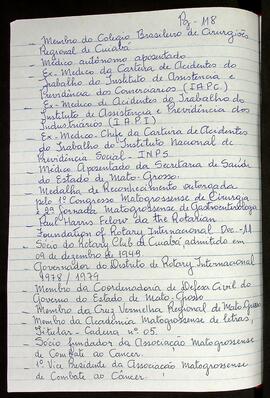 Pg - 118
Membro do Colegio Brasileiro de Cirurgiões
Regional de Cuiabá
Médico autônomo aposentado
Ex-Medico da Carteira de Acidentes do
Trabalho do Instituto de Assistência e
Previdência dos Comerciários (I.A.P.C.)
Ex-Medico de Acidentes do Trabalho do
Instituto de Assistência e Previdência dos
Industriarios (I A P I)
Ex-Médico. Chefe da Carteira de Acidentes
do Trabalho do Instituto Nacional de
Previdência Social - INPS
Médico Aposentado da Secretaria de Saúde
do Estado de Mato-Grosso.
Medalha de Reconhecimento outorgada
pelo 1º Congresso Matogrossense de Cirurgia
e 2ª Jornada Matogrossense de Gastroenterologia
Paul-Harris Felow da the Rotarian
Foundation of Rotary Internacional Doc.-11
Sócio do Rotary Club de Cuiabá admitido em
09 de dezembro de 1949.
Governador do Distrito de Rotary Internacional
1978/1979
Membro da Coordenadoria de Defesa Civil do
Governo do Estado de Mato-Grosso
Membro da Cruz Vermelha Regional de Mato Grosso
Membro da Academia Matogrossense de letras
Titular - Cadeira nº 05.
Sócio fundador da Associação Matogrossense
de Combate ao Câncer.
1º Vice Presidente da Associação Matogrossense
de Combate ao Câncer.